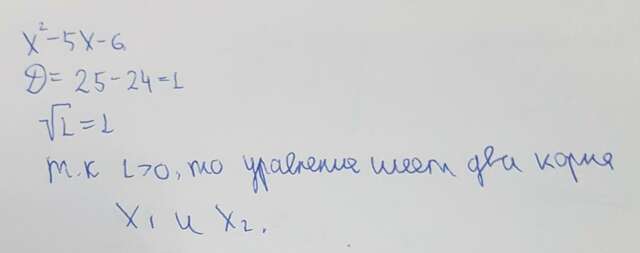 x²-5x-6
D= 25-24=1
√1=1
т.к 1>0, то уравнение имеет два корня
x₁ и x₂.